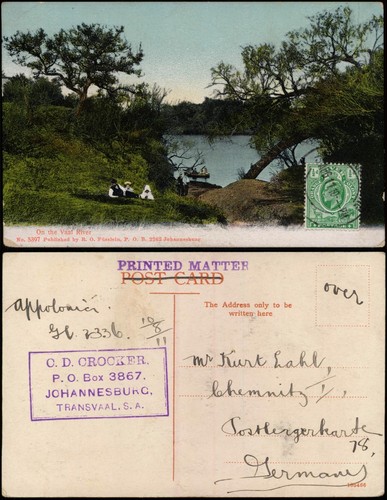 On the Vaal River
No. 5397 Published by R. O. Füsslein, P. O. B. 2593 Johannesburg
PRINTED MATTER
POST CARD
The Address only to be
written here
over
Appolonia.
10/8/11
O. D. CROCKER,
P. O. Box 3867,
JOHANNESBURG,
TRANSVAAL, S. A.
Mr Kurt Lahl,
Chemnitz I,
Postlergerkarte
78,
Germany